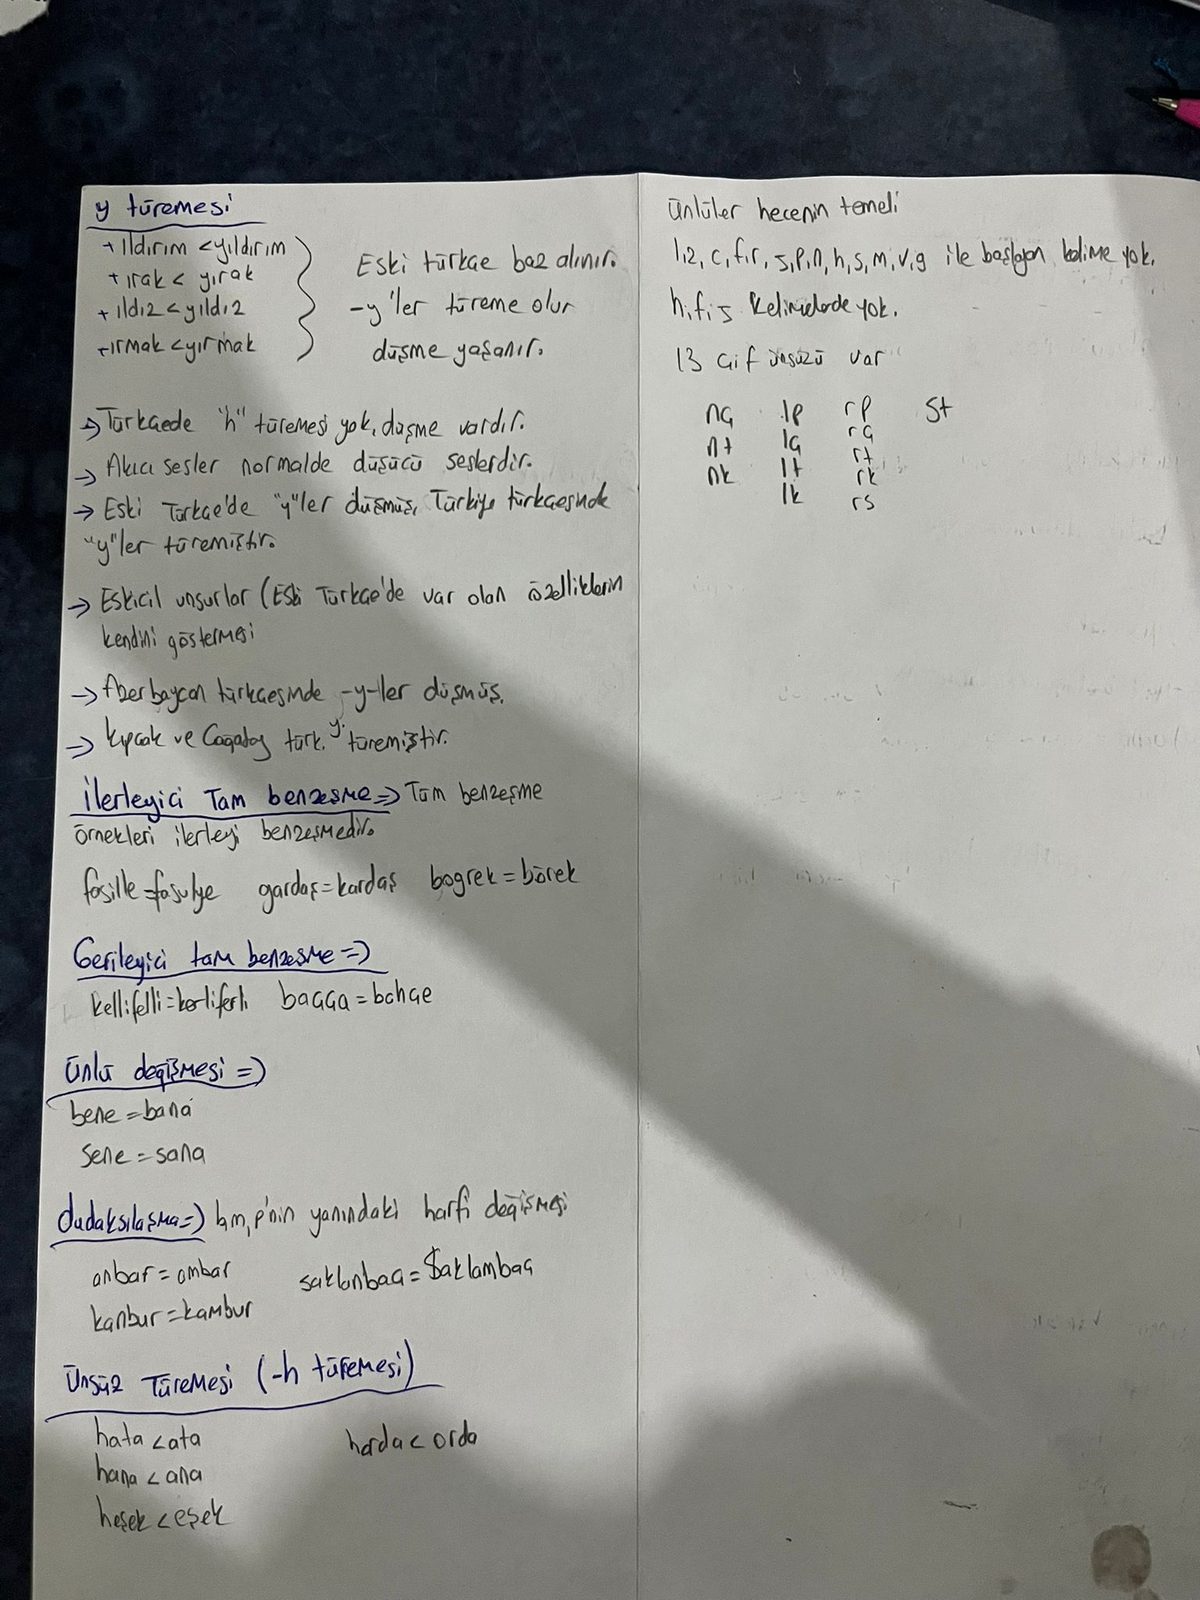 y türemesi
+ ıldırım < yıldırım
+ ırak < yırak
+ ıldız < yıldız
+ ırmak < yırmak
Eski türkçe baz alınır.
-y'ler türeme olur
düşme yaşanır.
→ Türkçede "h" türemesi yok, düşme vardır.
→ Akıcı sesler normalde düşücü seslerdir.
→ Eski Türkçe'de "y"ler düşmüş, Türkiye türkçesinde
"y"ler türemiştir.
→ Eskicil unsurlar (Eski Türkçe'de var olan özelliklerin
kendini göstermesi
→ Azerbaycan türkçesinde -y-ler düşmüş.
→ Kıpçak ve Çağatay türk. y. türemiştir.
İlerleyici Tam benzeşme => Tüm benzeşme
örnekleri ilerleyi benzeşmedir.
fasille = fasulye gardaş = kardaş bogrek = börek
Gerileyici tam benzeşme =>
kellifelli = kerliferli bağça = bahçe
Ünlü değişmesi =>
bene = bana
sene = sana
dudaksılaşma => b,m,p'nin yanındaki harfi değişmesi
anbar = ambar saklanbaç = Saklambaç
kanbur = kambur
Ünsüz Türemesi (-h türemesi)
hata < ata harda < orda
hana < ana
heşek < eşek
Ünlüler hecenin temeli
l,z, c, f,r, ş,p,n, h, s, m, v, g ile başlayan kelime yok.
h, f, ş kelimelerde yok.
13 çif ünsüzü var
nç lp rp st
nt lç rç
nk lt rt
lk rk
rs